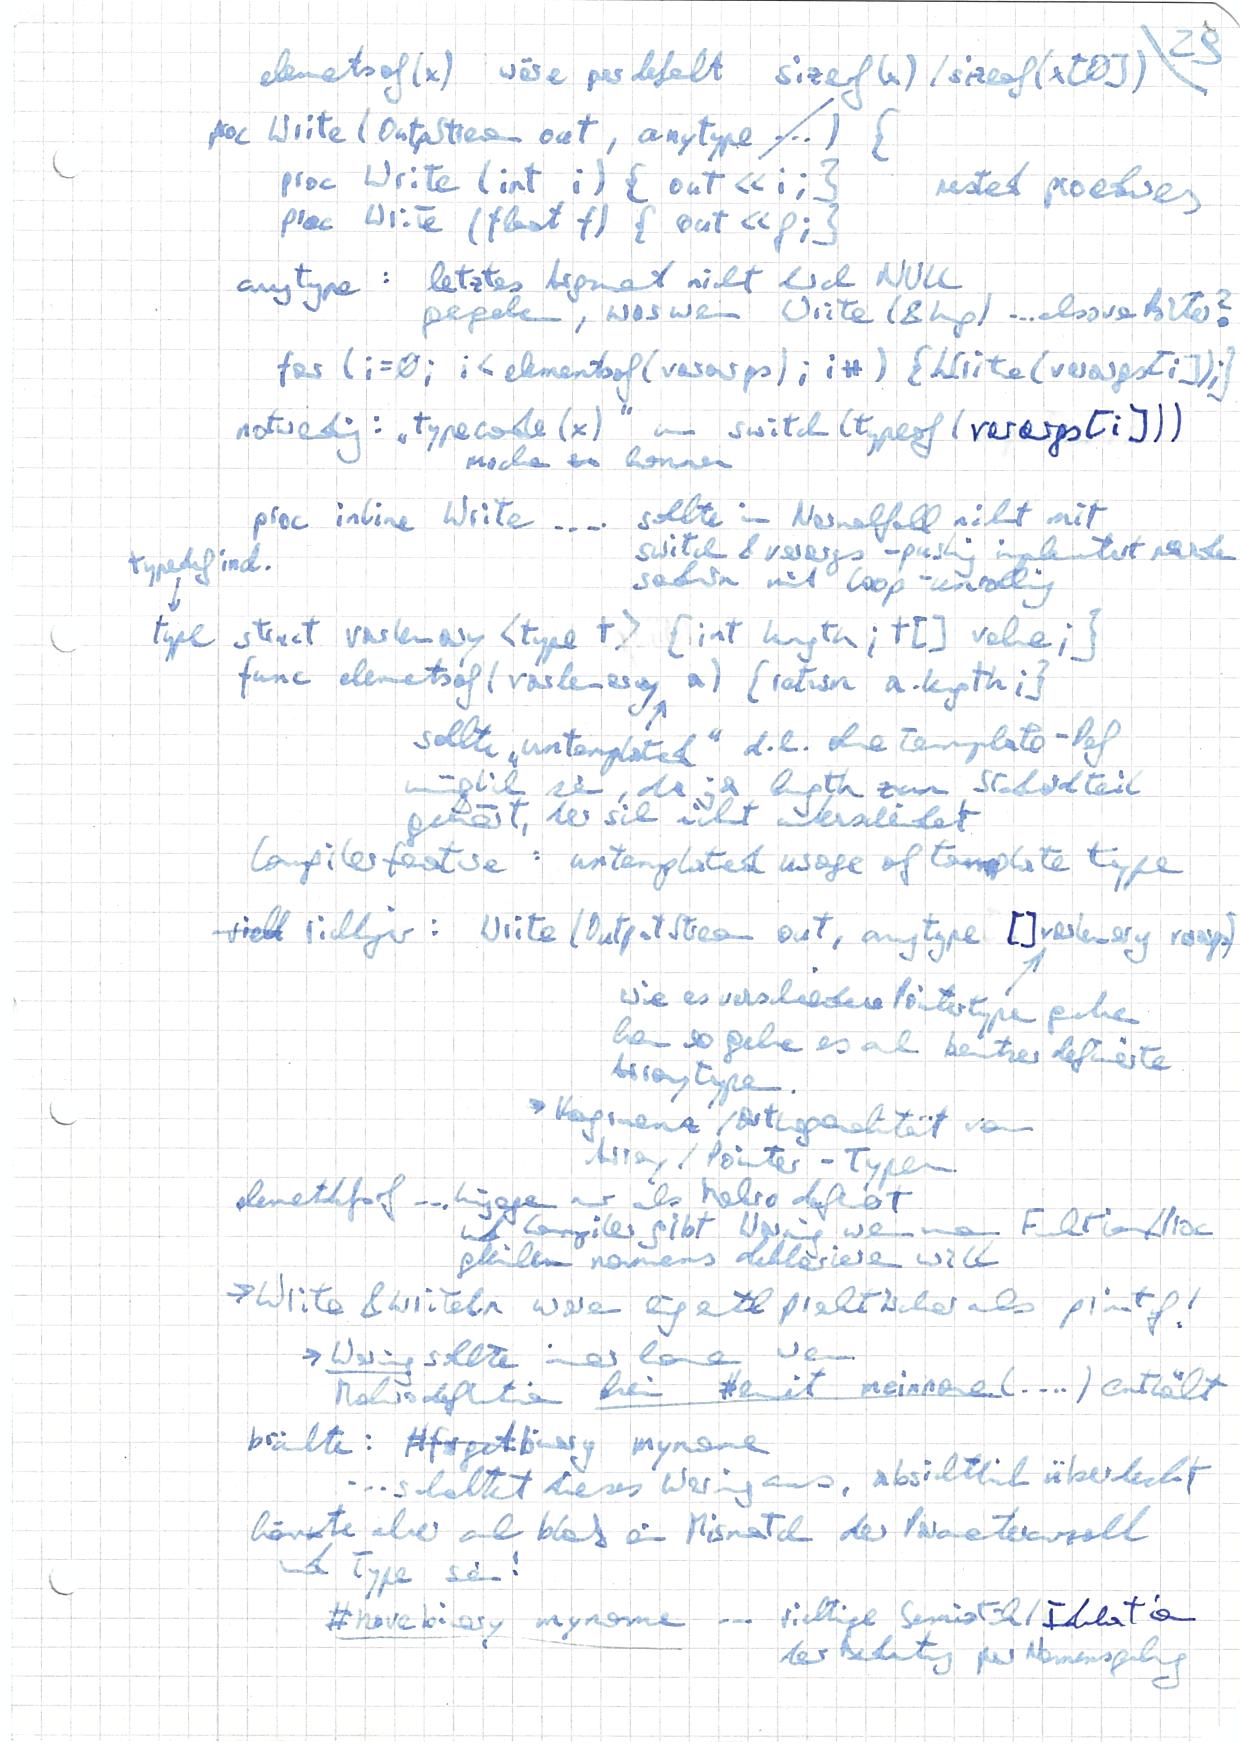 29
elementsof(x) wäre per default sizeof(x)/sizeof(x[0])
proc Write(OutputStream out, anytype ...) {
proc Write (int i) { out << i; } nested procedures
proc Write (float f) { out << f; }
anytype : letztes Argument nicht durch NULL
gegeben, was wenn Write (&hug) ... also varArter?
for (i=0; i < elementsof(varargs); i++) {Write(varargs[i]);}
notwendig: „typecode(x)" um switch(typeof(varargs[i]))
machen zu können
proc inline Write .... sollte im Normalfall nicht mit
switch & varargs-pushing implementiert werden
typedef ind.
sondern mit loop-unrolling
type struct varlenarray <type t> {int length; t[] value;}
func elementsof(varlenarray a) {return a.length;}
sollte „untemplated" d.h. ohne Template-Def
möglich sein, da ja length zum Standardteil
gehört, der sich nicht unterscheidet
Compilerfeature : untemplated usage of template type
richtiger : Write(OutputStream out, anytype []varlenarray varargs)
wie es verschiedene Pointertypen geben
kann so gebe es auch benutzerdefinierte
Arraytypen.
→ Kongruenz/Orthogonalität von
Array/Pointer-Typen
elementsof ... hingegen nur als Makro definiert
und Compiler gibt Warning wenn man Funktion/Proc
gleichen namens deklarieren will
→ Write & Writeln wären eigentl praktischer als printf!
→ Warning sollte immer kommen wenn
Makrodefinition kein #emit meinname(....) enthält
bräuchte: #forgetbinary myname
...schaltet dieses Warning aus, absichtlich überdeckt
könnte aber auch bloß ein Mismatch der Parameteranzahl
und Type sein!
#havebinary myname ... richtige Semantik/
der Bedeutung per Namensgebung